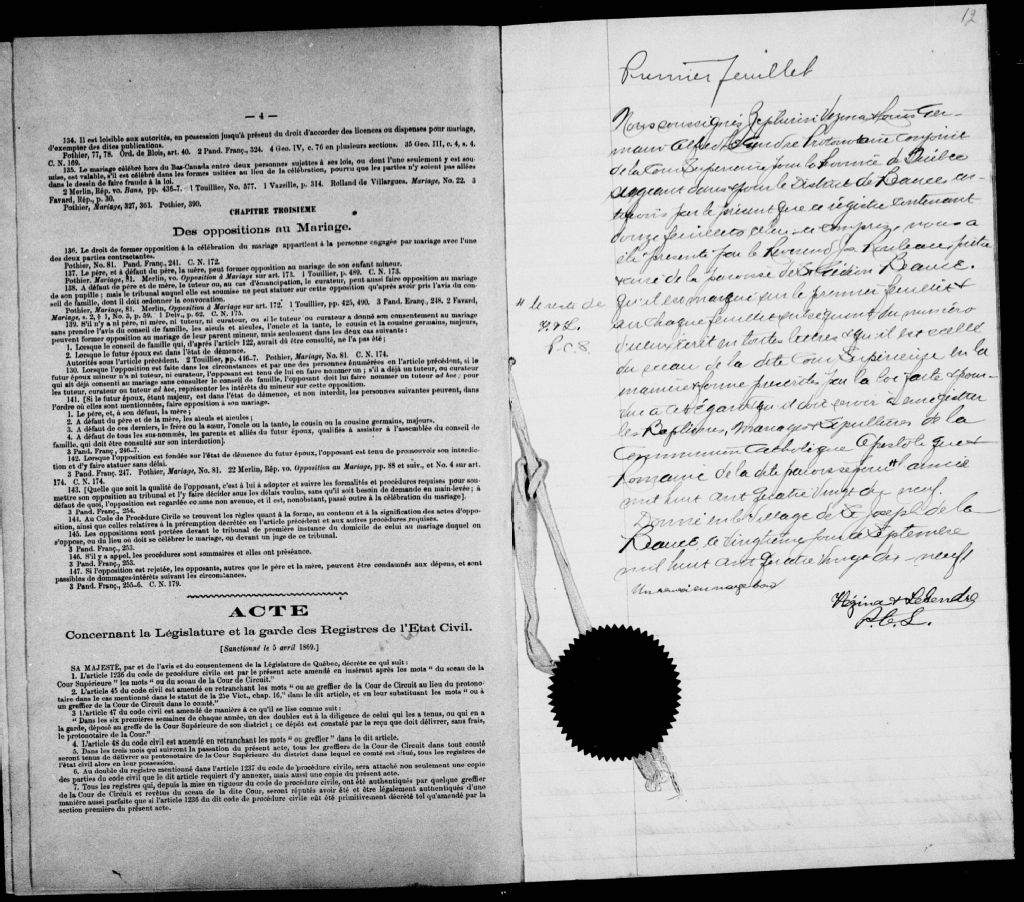 — 4 —
134. Il est loisible aux autorités, en possession jusqu'à présent du droit d'accorder des licences ou dispenses pour mariage,
d'exempter des dites publications.
Pothier, 77, 78. Ord. de Blois, art. 40. 2 Pand. Franç., 324. 4 Geo. IV, c. 76 en plusieurs sections. 35 Geo. III, c. 4, s. 4.
C. N. 169.
135. Le mariage célébré hors du Bas-Canada entre deux personnes sujettes à ses lois, ou dont l'une seulement y est sou-
mise, est valable, s'il est célébré dans les formes usitées au lieu de la célébration, pourvu que les parties n'y soient pas allées
dans le dessin de faire fraude à la loi.
2 Merlin, Rép. vo. Bans, pp. 436-7. 1 Touillier, No. 577. 1 Vazeille, p. 314. Rolland de Villargues. Mariage, No. 22. 3
Favard, Rép., p. 30.
Pothier, Mariage, 327, 361. Pothier, 390.
CHAPITRE TROISIEME
Des oppositions au Mariage.
136. Le droit de former opposition à la célébration du mariage appartient à la personne engagée par mariage avec l'une
des deux parties contractantes.
Pothier, No. 81. Pand. Franç., 241. C. N. 172.
137. Le père, et à défaut du père, la mère, peut former opposition au mariage de son enfant mineur.
Pothier, Mariage, 81. Merlin, vo. Opposition à Mariage sur art. 173. 1 Touillier, p. 489. C. N. 173.
138. A défaut de père et de mère, le tuteur ou, au cas d'émancipation, le curateur, peut aussi former opposition au mariage
de son pupille; mais le tribunal auquel elle est soumise ne peut statuer sur cette opposition qu'après avoir pris l'avis du con-
seil de famille, dont il doit ordonner la convocation.
Pothier, Mariage, 81. Merlin, Opposition à Mariage sur art. 172. 1 Touillier, pp. 425, 490. 3 Pand. Franç., 248. 2 Favard,
Mariage, s. 2, § 1, No. 3, p. 59. 1 Delv., p. 62. C. N. 175.
139. S'il n'y a ni père, ni mère, ni tuteur, ni curateur, ou si le tuteur ou curateur a donné son consentement au mariage
sans prendre l'avis du conseil de famille, les aïeuls et aïeules, l'oncle et la tante, le cousin et la cousine germains, majeurs,
peuvent former opposition au mariage de leur parent mineur, mais seulement dans les deux cas suivants:
1. Lorsque le conseil de famille qui, d'après l'article 122, aurait dû être consulté, ne l'a pas été;
2. Lorsque le futur époux est dans l'état de démence.
Autorités sous l'article précédent. 2 Touillier, pp. 416-7. Pothier, Mariage, No. 81. C. N. 174.
130. Lorsque l'opposition est faite dans les circonstances et par une des personnes énumérées en l'article précédent, si le
futur époux mineur n'a ni tuteur, ni curateur, l'opposant est tenu de lui en faire nommer un; s'il a déjà un tuteur, ou curateur
qui ait déjà consenti au mariage sans consulter le conseil de famille, l'opposant doit lui faire nommer un tuteur ad hoc; pour
les tuteur, curateur ou tuteur ad hoc, représenter les intérêts du mineur sur cette opposition.
141. [Si le futur époux, étant majeur, est dans l'état de démence, et non interdit, les personnes suivantes peuvent, dans
l'ordre où elles sont mentionnées, faire opposition à son mariage.
1. Le père, et, à son défaut, la mère;
2. A défaut du père et de la mère, les aïeuls et aïeules;
3. A défaut de ces derniers, le frère ou la sœur, l'oncle ou la tante, le cousin ou la cousine germains, majeurs.
4. A défaut de tous les sus-nommés, les parents et alliés du futur époux, qualifiés à assister à l'assemblée du conseil de
famille, qui doit être consulté sur son interdiction].
3 Pand. Franç., 246-7.
142. Lorsque l'opposition est fondée sur l'état de démence du futur époux, l'opposant est tenu de promouvoir son interdic-
tion et d'y faire statuer sans délai.
3 Pand. Franç. 247. Pothier, Mariage, No. 81. 22 Merlin, Rép. vo. Opposition au Mariage, pp. 88 et suiv., et No. 4 sur art.
174. C. N. 174.
143. [Quelle que soit la qualité de l'opposant, c'est à lui à adopter et suivre les formalités et procédures requises pour sou-
mettre son opposition au tribunal et l'y faire décider sous les délais voulus, sans qu'il soit besoin de demande en main-levée; à
défaut de quoi, l'opposition est regardée comme non avenue, et il est, nonobstant, passé outre à la célébration du mariage].
3 Pand. Franç., 254.
144. Au Code de Procédure Civile se trouvent les règles quant à la forme, au contenu et à la signification des actes d'oppo-
sition, ainsi que celles relatives à la péremption décrétée en l'article précédent et aux autres procédures requises.
145. Les oppositions sont portées devant le tribunal de première instance du domicile de celui au mariage duquel on
s'oppose, ou du lieu où doit se célébrer le mariage, ou devant un juge de ce tribunal.
3 Pand. Franç., 253.
146. S'il y a appel, les procédures sont sommaires et elles ont préséance.
3 Pand. Franç., 253.
147. Si l'opposition est rejetée, les opposants, autres que le père et la mère, peuvent être condamnés aux dépens, et sont
passibles de dommages-intérêts suivant les circonstances.
3 Pand. Franç., 255-6. C. N. 179.
ACTE
Concernant la Législature et la garde des Registres de l'Etat Civil.
[Sanctionné le 5 avril 1869.]
SA MAJESTÉ, par et de l'avis et du consentement de la Législature de Québec, décrète ce qui suit:
1. L'article 1236 du code de procédure civile est par le présent acte amendé en insérant après les mots " du sceau de la
Cour Supérieure " les mots " ou du sceau de la Cour de Circuit."
2. L'article 45 du code civil est amendé en retranchant les mots " ou au greffier de la Cour de Circuit au lieu du protono-
taire dans le cas mentionné dans le statut de la 25e Vict., chap. 16," dans le dit article, et en leur substituant les mots " ou à
un greffier de la Cour de Circuit dans le comté."
3 L'article 47 du code civil est amendé de manière à ce qu'il se lise comme suit:
" Dans les six premières semaines de chaque année, un des doubles est à la diligence de celui qui les a tenus, ou qui en a
la garde, déposé au greffe de la Cour Supérieure de son district; ce dépôt est constaté par le reçu que doit délivrer, sans frais,
le protonotaire de la Cour."
4. L'article 48 du code civil est amendé en retranchant les mots " ou greffier " dans le dit article.
5. Dans les trois mois qui suivront la passation du présent acte, tous les greffiers de la Cour de Circuit dans tout comté
seront tenus de délivrer au protonotaire de la Cour Supérieure du district dans lequel ce comté est situé, tous les registres de
l'état civil alors en leur possession.
6. Au double du registre mentionné dans l'article 1237 du code de procédure civile, sera attaché non seulement une copie
des parties du code civil que le dit article requiert d'y annexer, mais aussi une copie du présent acte.
7. Tous les registres qui, depuis la mise en vigueur du code de procédure civile, ont été authentiqués par quelque greffier
de la Cour de Circuit et revêtus du sceau de la dite Cour, seront réputés avoir été et être légalement authentiqués d'une
manière aussi parfaite que si l'article 1236 du dit code de procédure civile eût été primitivement décrété tel qu'amendé par la
section première du présent acte.
12
Premier feuillet
Nous soussignés Zephirin Vézina & Louis
Alfred Protonotaire Conjoint
de la Cour Supérieure pour la Province de Québec
siégeant dans & pour le District de Beauce, cer-
tifions par le présent que ce registre contenant
douze feuillets y compris nous a
été présenté par le Révérend Rouleau, prêtre
curé de la paroisse de St Frédéric Beauce.
" le reste de
V. & L.
P. C. S.
Qu'il est marqué sur le premier feuillet &
sur chaque feuillet subséquent du numéro
d'iceux écrit en toutes lettres & qu'il est scellé
du sceau de la dite Cour Supérieure en la
manière & forme prescrites par la loi faite & pour-
vue à cet égard qu'il doive servir à enregistrer
les Baptêmes, Mariages & Sépultures de la
Communion Catholique Apostolique &
Romaine de la dite paroisse " l'année
mil huit cent quatre vingt dix neuf.
Donné en le village de St Joseph de la
Beauce, le vingtième jour de Septembre
mil huit cent quatre vingt dix neuf
Un renvoi en marge bon
Vézina & Letendre
P. C. S.